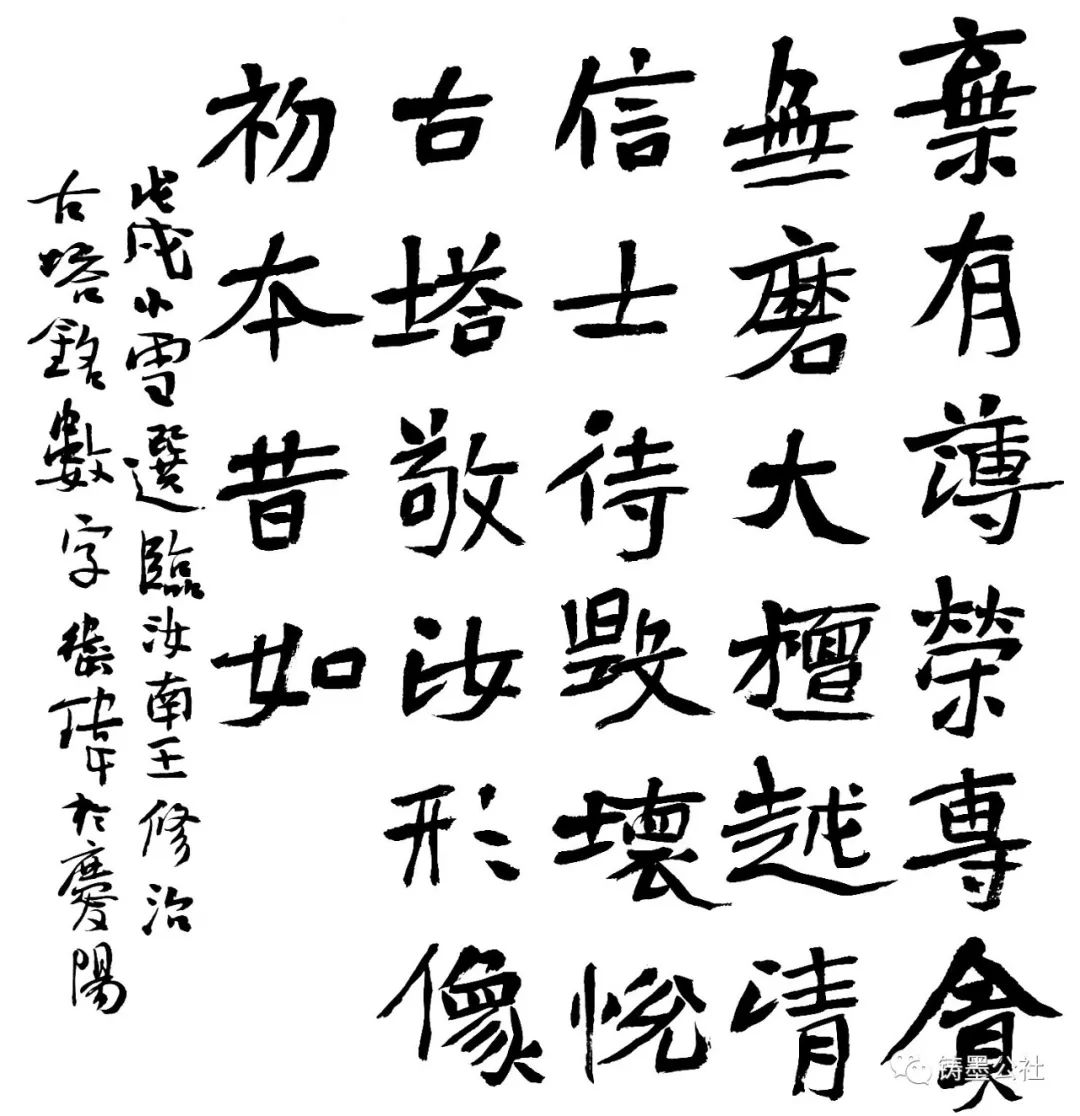 棄有薄榮專貪
無磨大檀越清
信士待毀壞悅
古塔敬汝形像
初本昔如
戊戌小雪選臨汝南王修治
古塔銘數字瑋於慶陽
铸墨公社